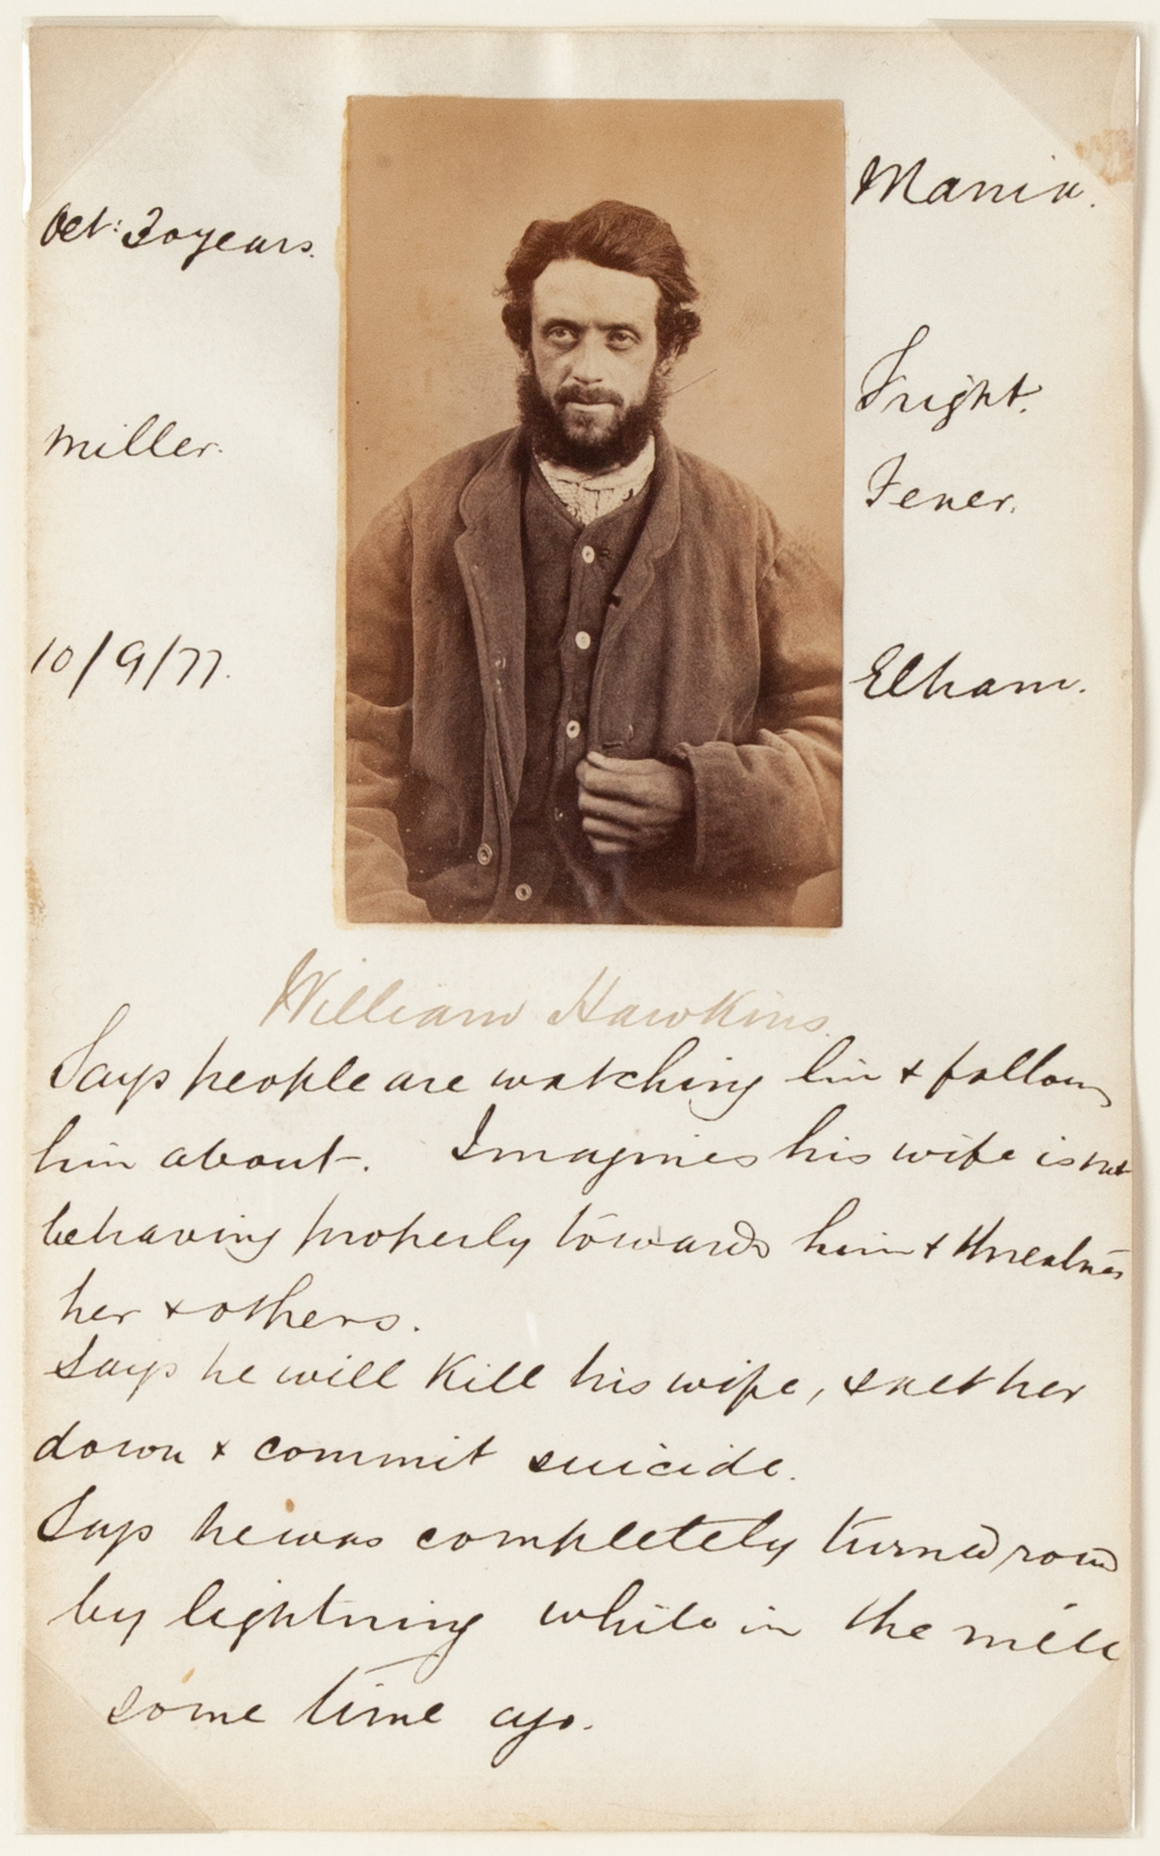 Oet: 30 years.
Miller.
10/9/77.
Mania.
Fright.
Fever.
Elham.
William Hawkins.
Says people are watching him & follow
him about. Imagines his wife is not
behaving properly towards him &
her & others.
Says he will kill his wife, & her
down & commit suicide.
Says he was completely turned round
by lightning while in the mill
some time ago.